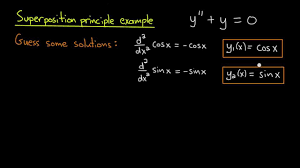 Superposition principle example
y'' + y = 0
Guess some solutions: d²/dx² cosx = -cosx y₁(x) = cosx
d²/dx² sinx = -sinx y₂(x) = sinx